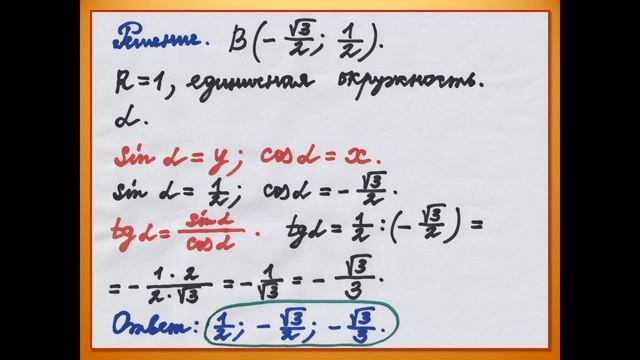 Решение. B(-√3/2; 1/2).
R=1, единичная окружность.
α.
sin α = y; cos α = x.
sin α = 1/2; cos α = -√3/2.
tg α = sin α/cos α. tg α = 1/2 : (-√3/2) =
= - 1·2/2·√3 = - 1/√3 = - √3/3.
Ответ: 1/2; -√3/2; -√3/3.